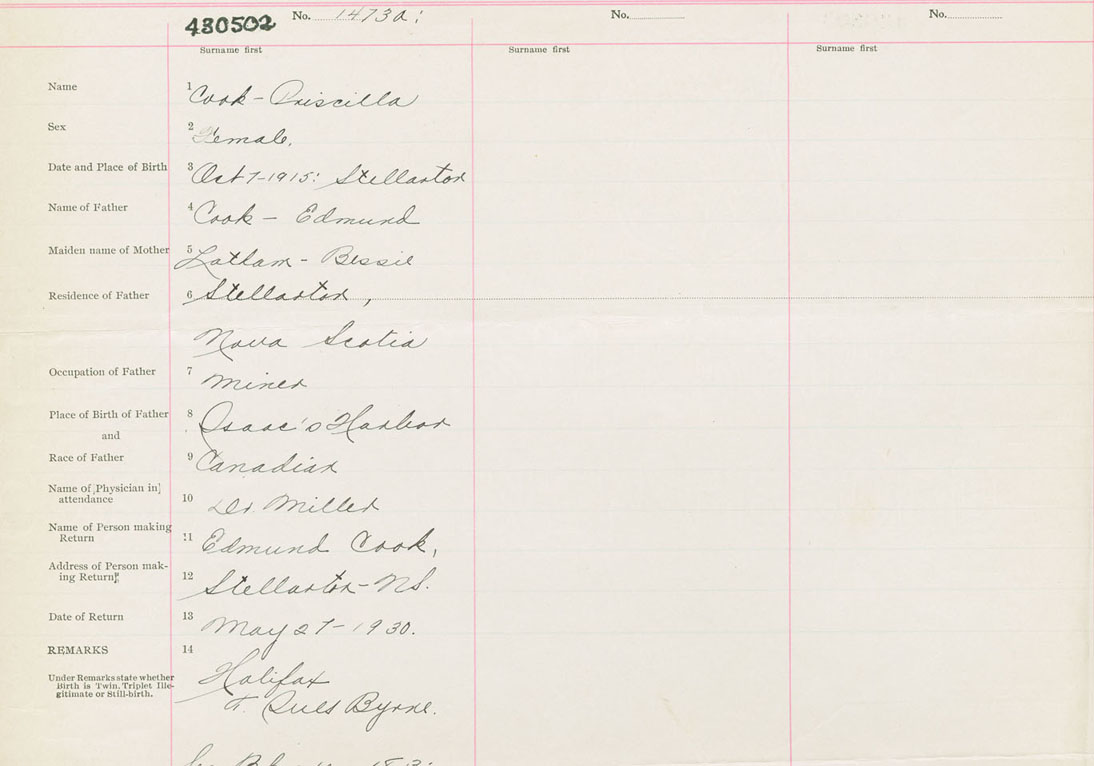 430502 No. 1473a: No. No.
Surname first Surname first Surname first
Name 1 Cook - Priscilla
Sex 2 Female.
Date and Place of Birth 3 Oct 7-1915: Stellarton
Name of Father 4 Cook - Edmund
Maiden name of Mother 5 Latham - Bessie
Residence of Father 6 Stellarton,
Nova Scotia
Occupation of Father 7 Miner
Place of Birth of Father 8 Isaac's Harbor
and
Race of Father 9 Canadian
Name of Physician in
attendance 10 Dr. Miller
Name of Person making
Return 11 Edmund Cook,
Address of Person mak-
ing Return 12 Stellarton - N.S.
Date of Return 13 May 27-1930.
REMARKS 14
Under Remarks state whether
Birth is Twin, Triplet Ille-
gitimate or Still-birth.
Halifax
Byrne.